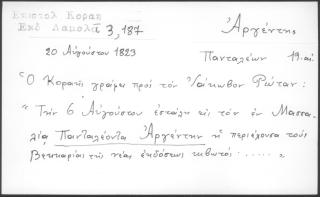 Επιστολ Κοραη
Εκδ Δαμαλά 3,187
Ἀργέντης
20 Αὐγούστου 1823
Πανταλέων 19 αἰ.
Ὁ Κοραῆς γράφει πρὸς τὸν Ἰάκωβον Ῥώταν :
" Τὴν 6 Αὐγούστου ἐστάλη εἰς τὸν ἐν Μασσα-
λίᾳ Πανταλέοντα Ἀργέντην ἡ περιέχουσα τοὺς
Βεκκαρίας τῆς νέας ἐκδόσεως κιβωτός : ..... "